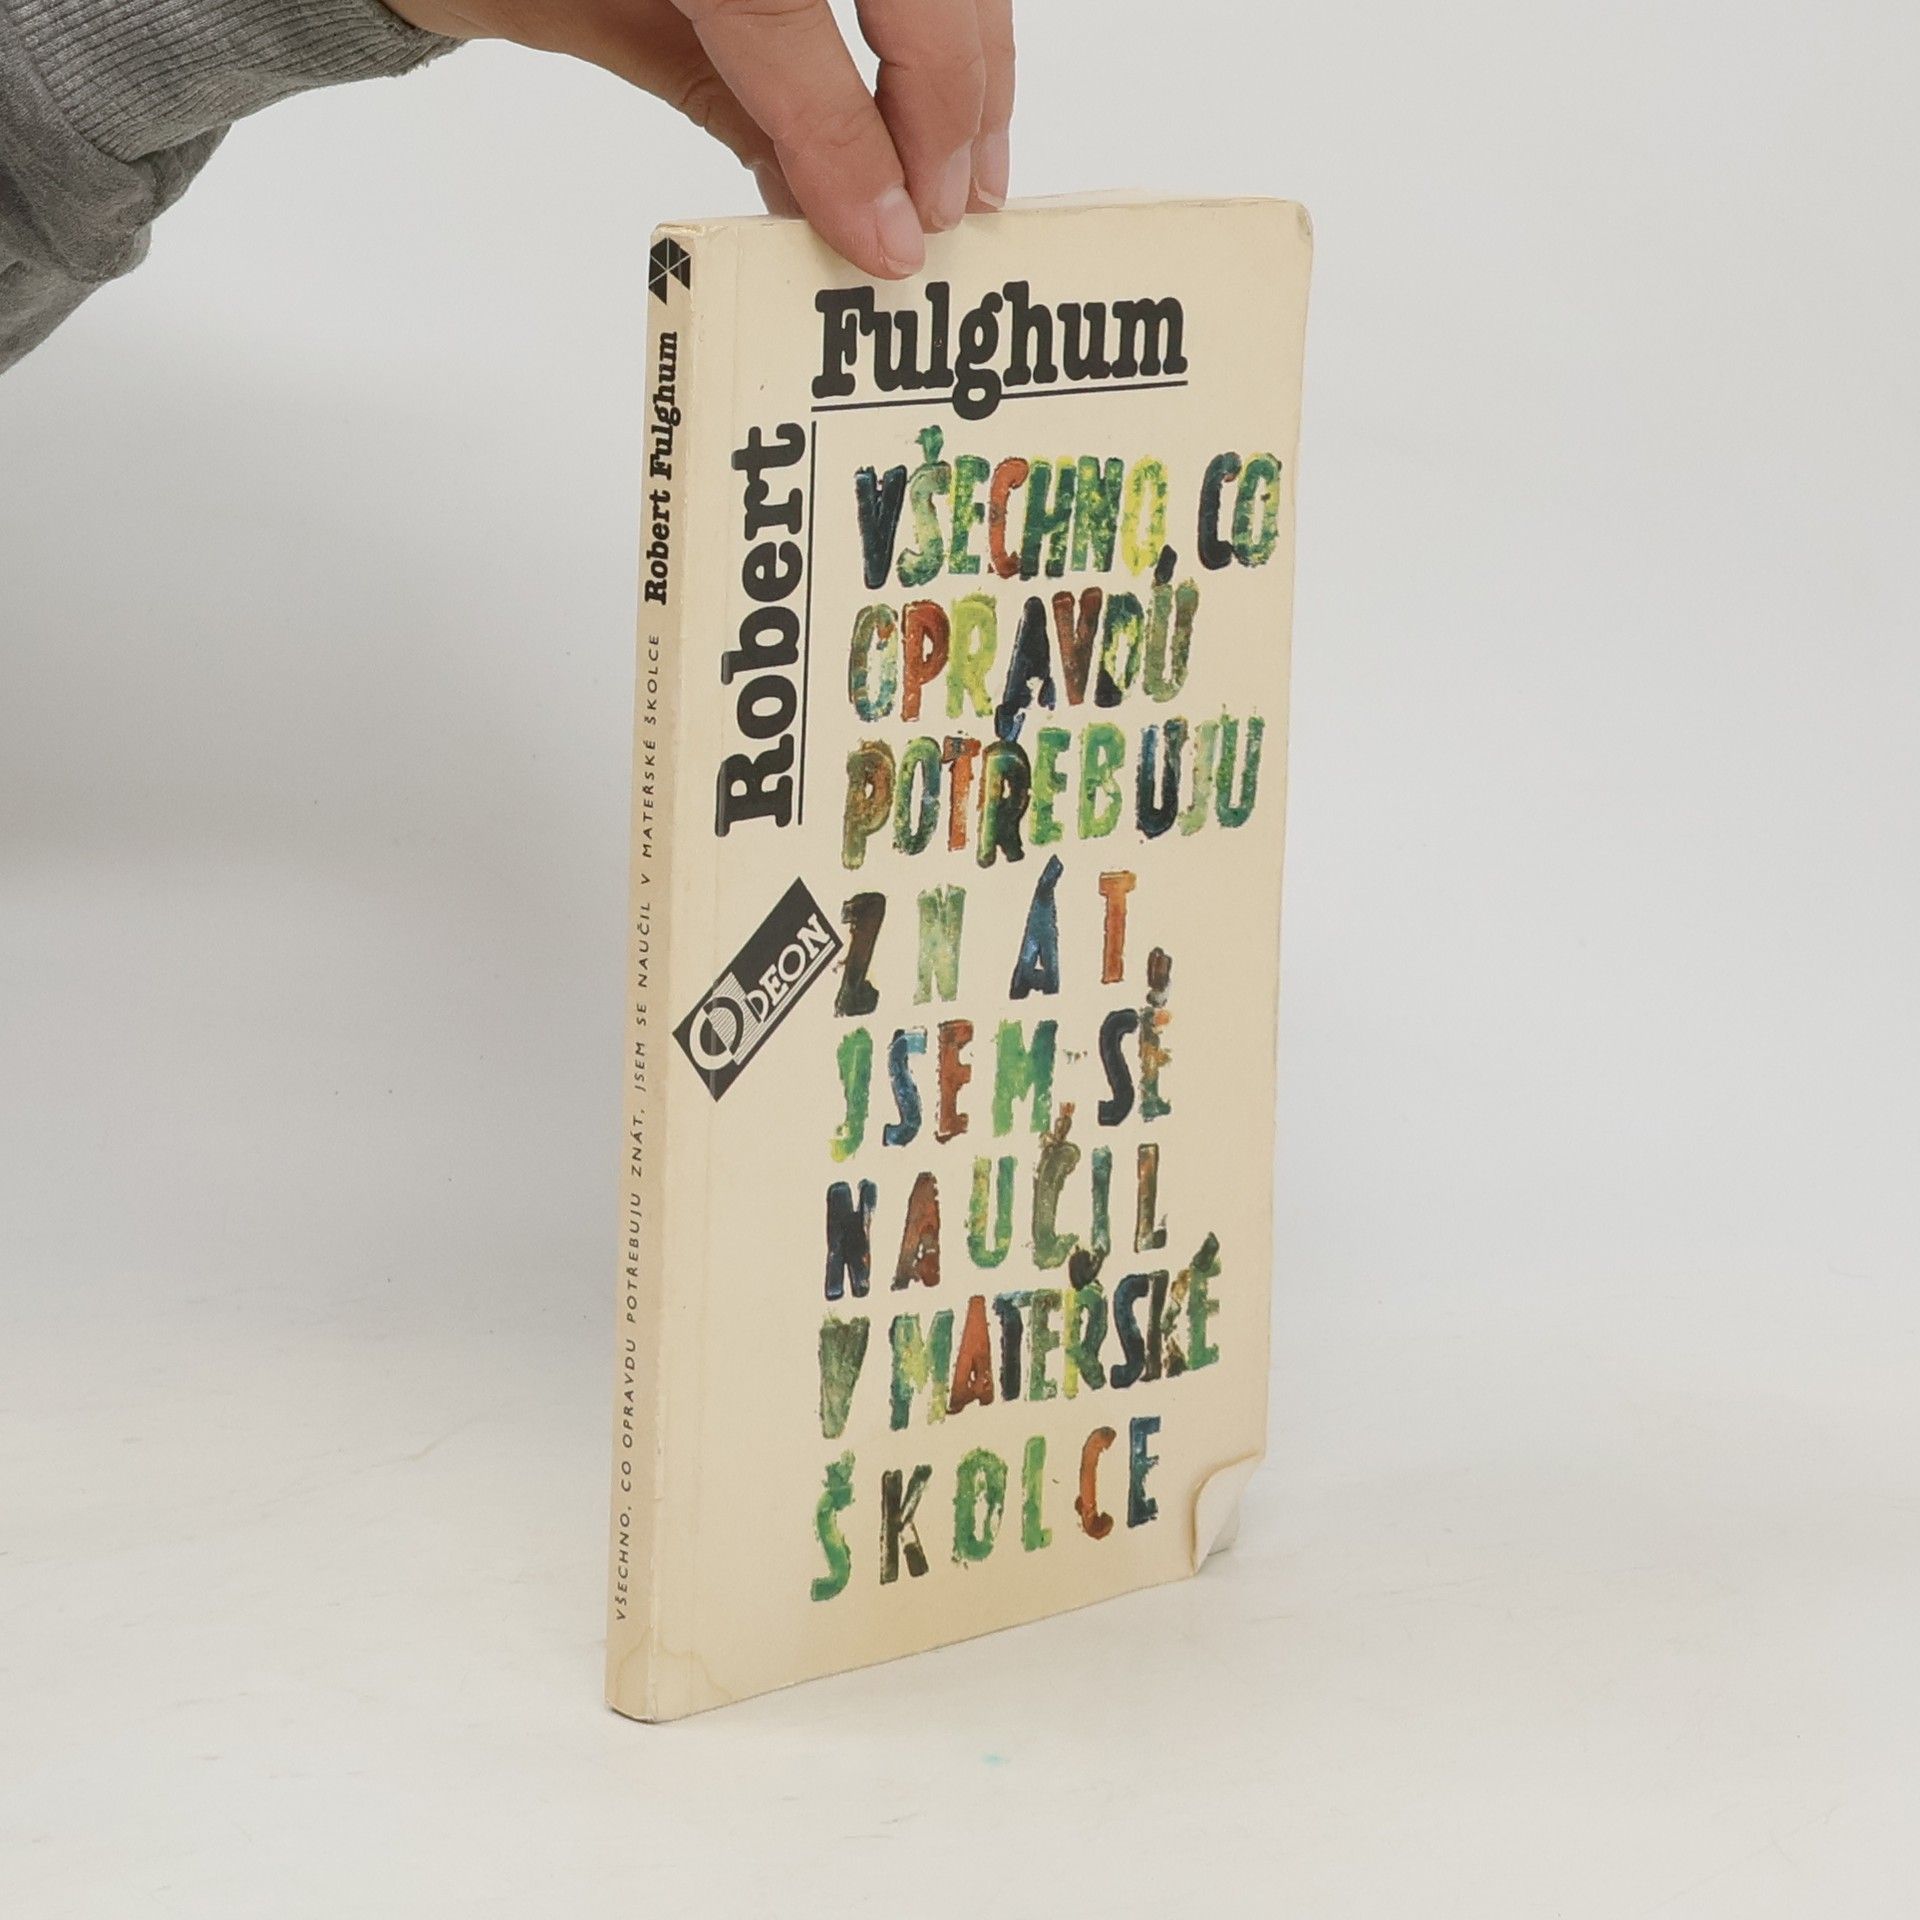 Robert Fulghum
VŠECHNO, CO OPRAVDU POTŘEBUJU ZNÁT, JSEM SE NAUČIL V MATEŘSKÉ ŠKOLCE
Fulghum
Robert
VŠECHNO, CO
OPRAVDU
POTŘEBUJU
ZNÁT,
JSEM SE
NAUČIL
V MATEŘSKÉ
ŠKOLCE
ODEON